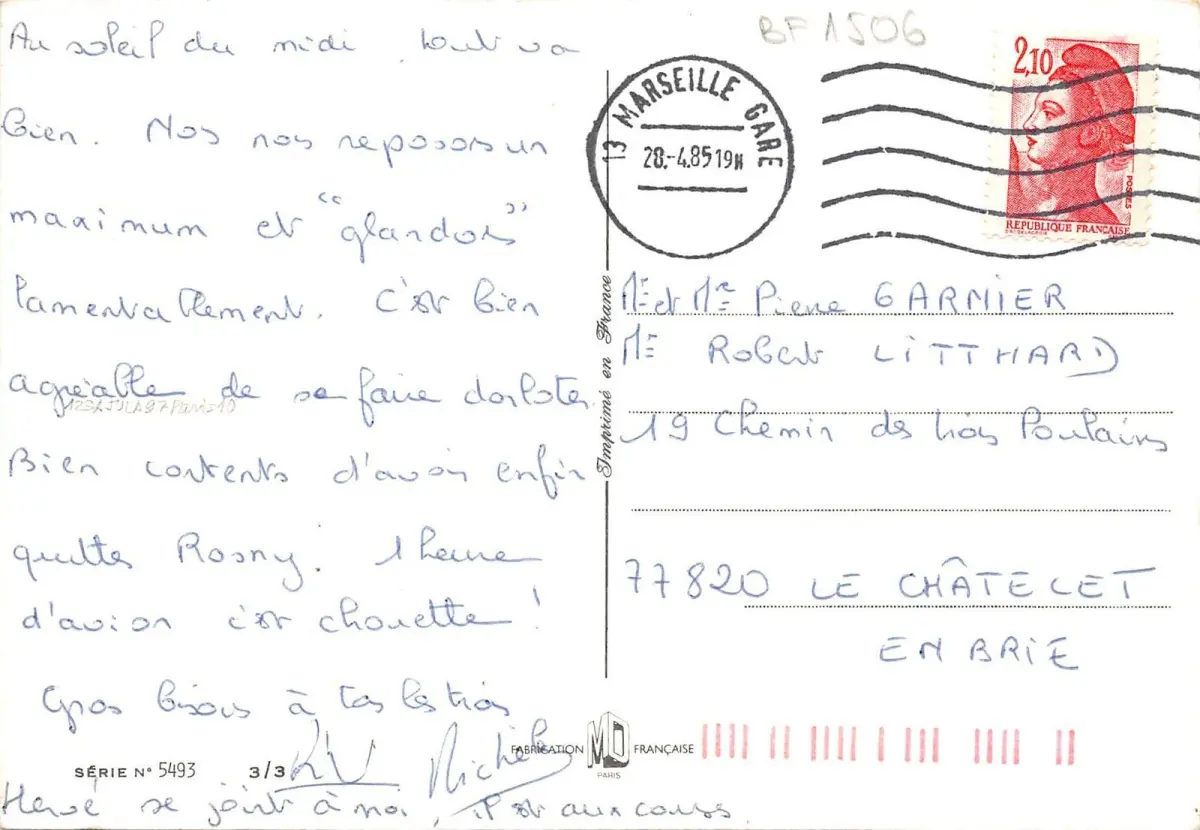 Au soleil du midi tout va
bien. Nos nos reposons un
maximum et "glandons"
lamentablement. C'est bien
agréable de se faire dorloter.
Bien contents d'avoir enfin
quittés Rosny. 1 heure
d'avion c'est chouette !
Gros bisous à tos les trois
Michèle
Hervé se joint à moi, il est aux courses.
SÉRIE N° 5493 3/3
BF 1506
13 MARSEILLE GARE
28.-4.85 19H
2,10
POSTES
RÉPUBLIQUE FRANÇAISE
Imprimé en France
Mme et Mr Pierre GARNIER
Me Robert LITTHARD
19 Chemin des trois Poulains
77820 LE CHÂTELET
EN BRIE
FABRICATION MD FRANÇAISE
PARIS